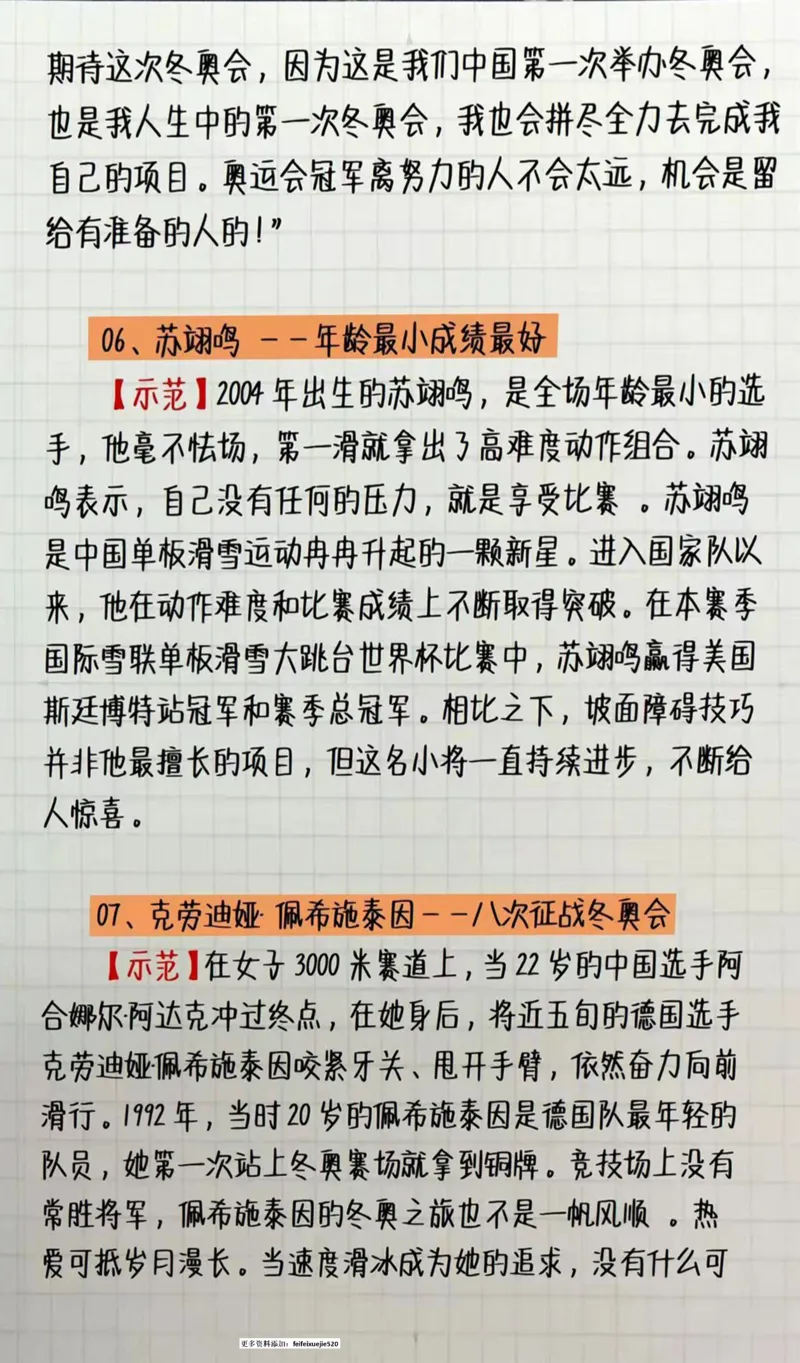 期待这次冬奥会，因为这是我们中国第一次举办冬奥会，
也是我人生中的第一次冬奥会，我也会拼尽全力去完成我
自己的项目。奥运会冠军离努力的人不会太远，机会是留
给有准备的人的！”
06、苏翊鸣 －－年龄最小成绩最好
【示范】2004 年出生的苏翊鸣，是全场年龄最小的选
手，他毫不怯场，第一滑就拿出了高难度动作组合。苏翊
鸣表示，自己没有任何的压力，就是享受比赛 。苏翊鸣
是中国单板滑雪运动冉冉升起的一颗新星。进入国家队以
来，他在动作难度和比赛成绩上不断取得突破。在本赛季
国际雪联单板滑雪大跳台世界杯比赛中，苏翊鸣赢得美国
斯廷博特站冠军和赛季总冠军。相比之下，坡面障碍技巧
并非他最擅长的项目，但这名小将一直持续进步，不断给
人惊喜。
07、克劳迪娅·佩希施泰因－－八次征战冬奥会
【示范】在女子 3000 米赛道上，当 22 岁的中国选手阿
合娜尔·阿达克冲过终点，在她身后，将近五旬的德国选手
克劳迪娅·佩希施泰因咬紧牙关、甩开手臂，依然奋力向前
滑行。1992 年，当时 20 岁的佩希施泰因是德国队最年轻的
队员，她第一次站上冬奥赛场就拿到铜牌。竞技场上没有
常胜将军，佩希施泰因的冬奥之旅也不是一帆风顺 。热
爱可抵岁月漫长。当速度滑冰成为她的追求，没有什么可
更多资料添加：feifeixuejie520